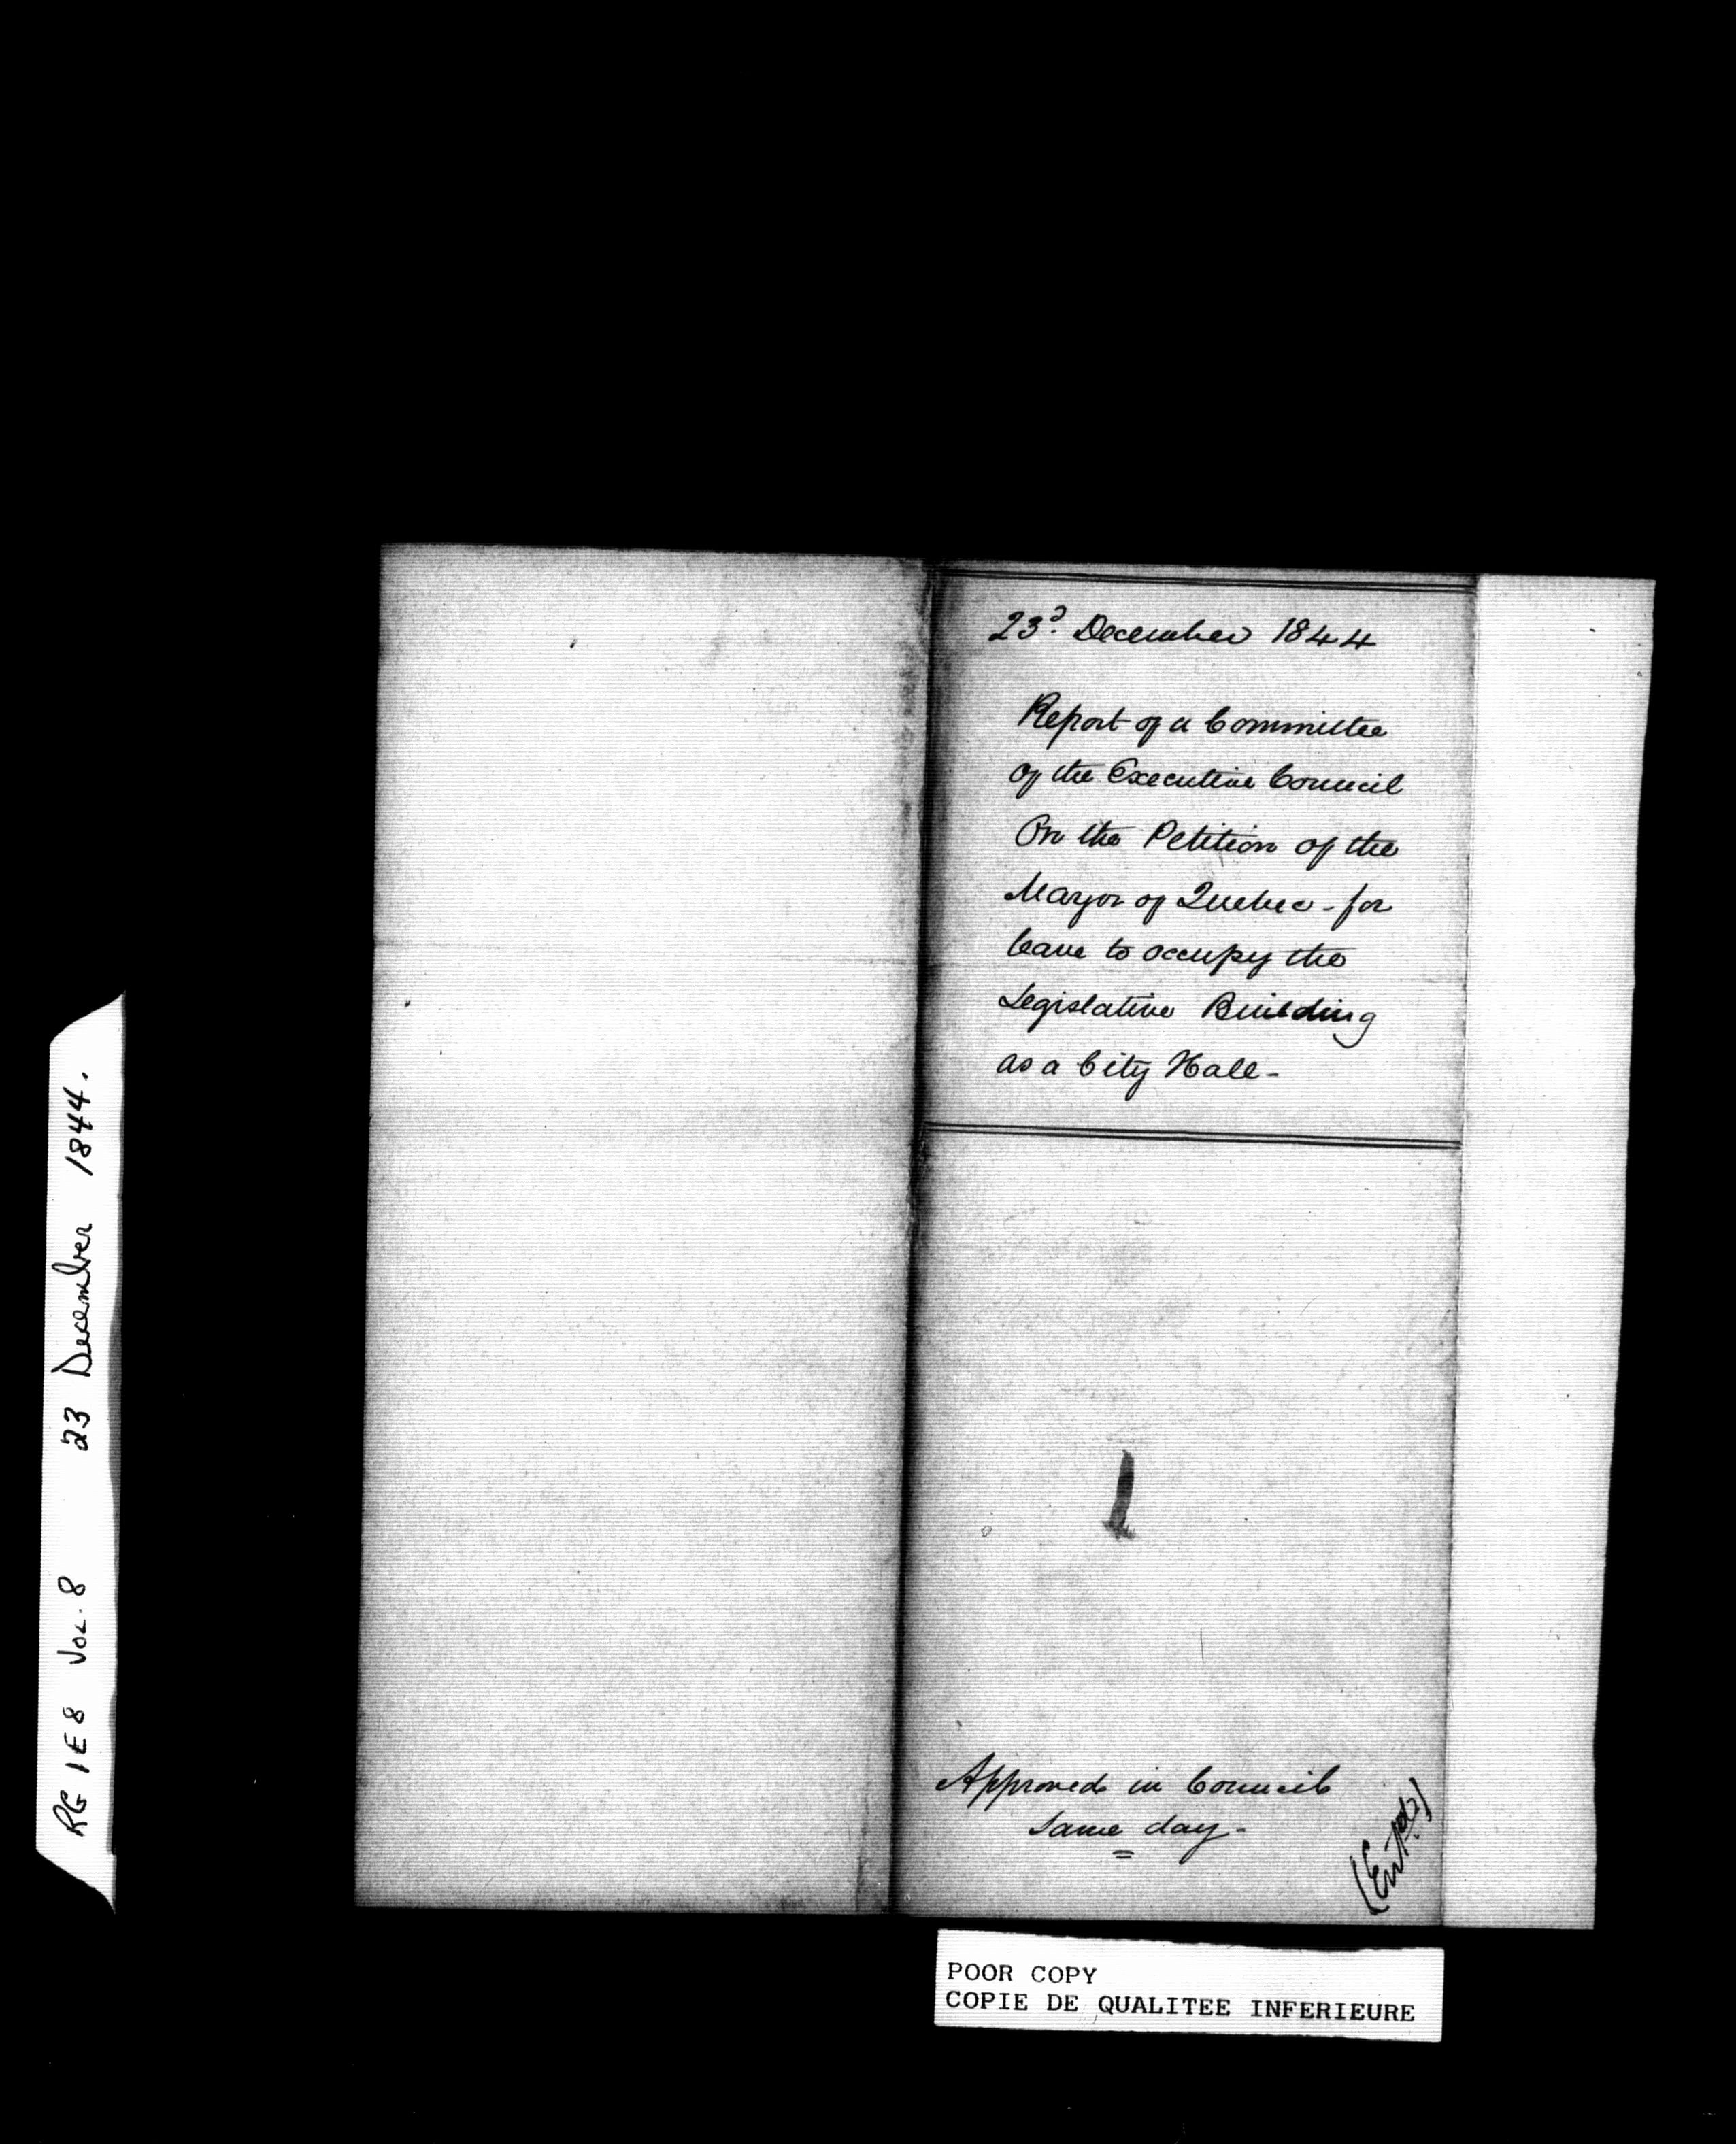 23d. December 1844
Report of a Committee
of the Executive Council
On the Petition of the
Mayor of Quebec - for
leave to occupy the
Legislative Building
as a City Hall -
Approved in Council
same day -
(Entd.)
RG 1 E 8 VOL. 8 23 December 1844.
POOR COPY
COPIE DE QUALITEE INFERIEURE